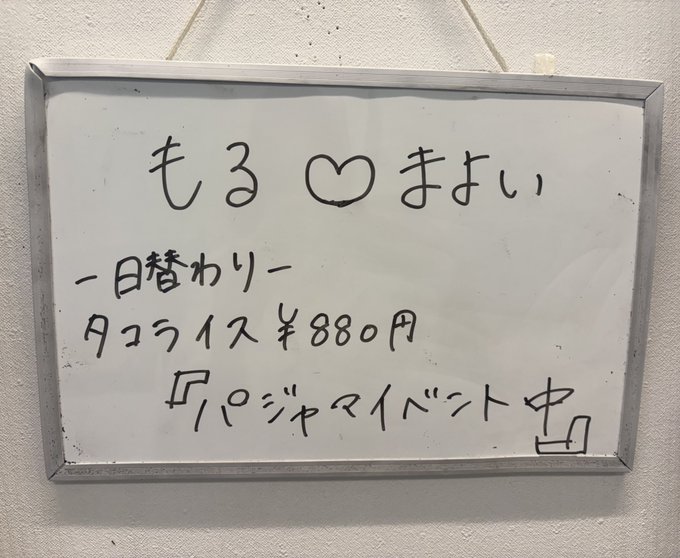 もる♡まよい
ー日替わりー
タコライス ¥880円
『パジャマイベント中』